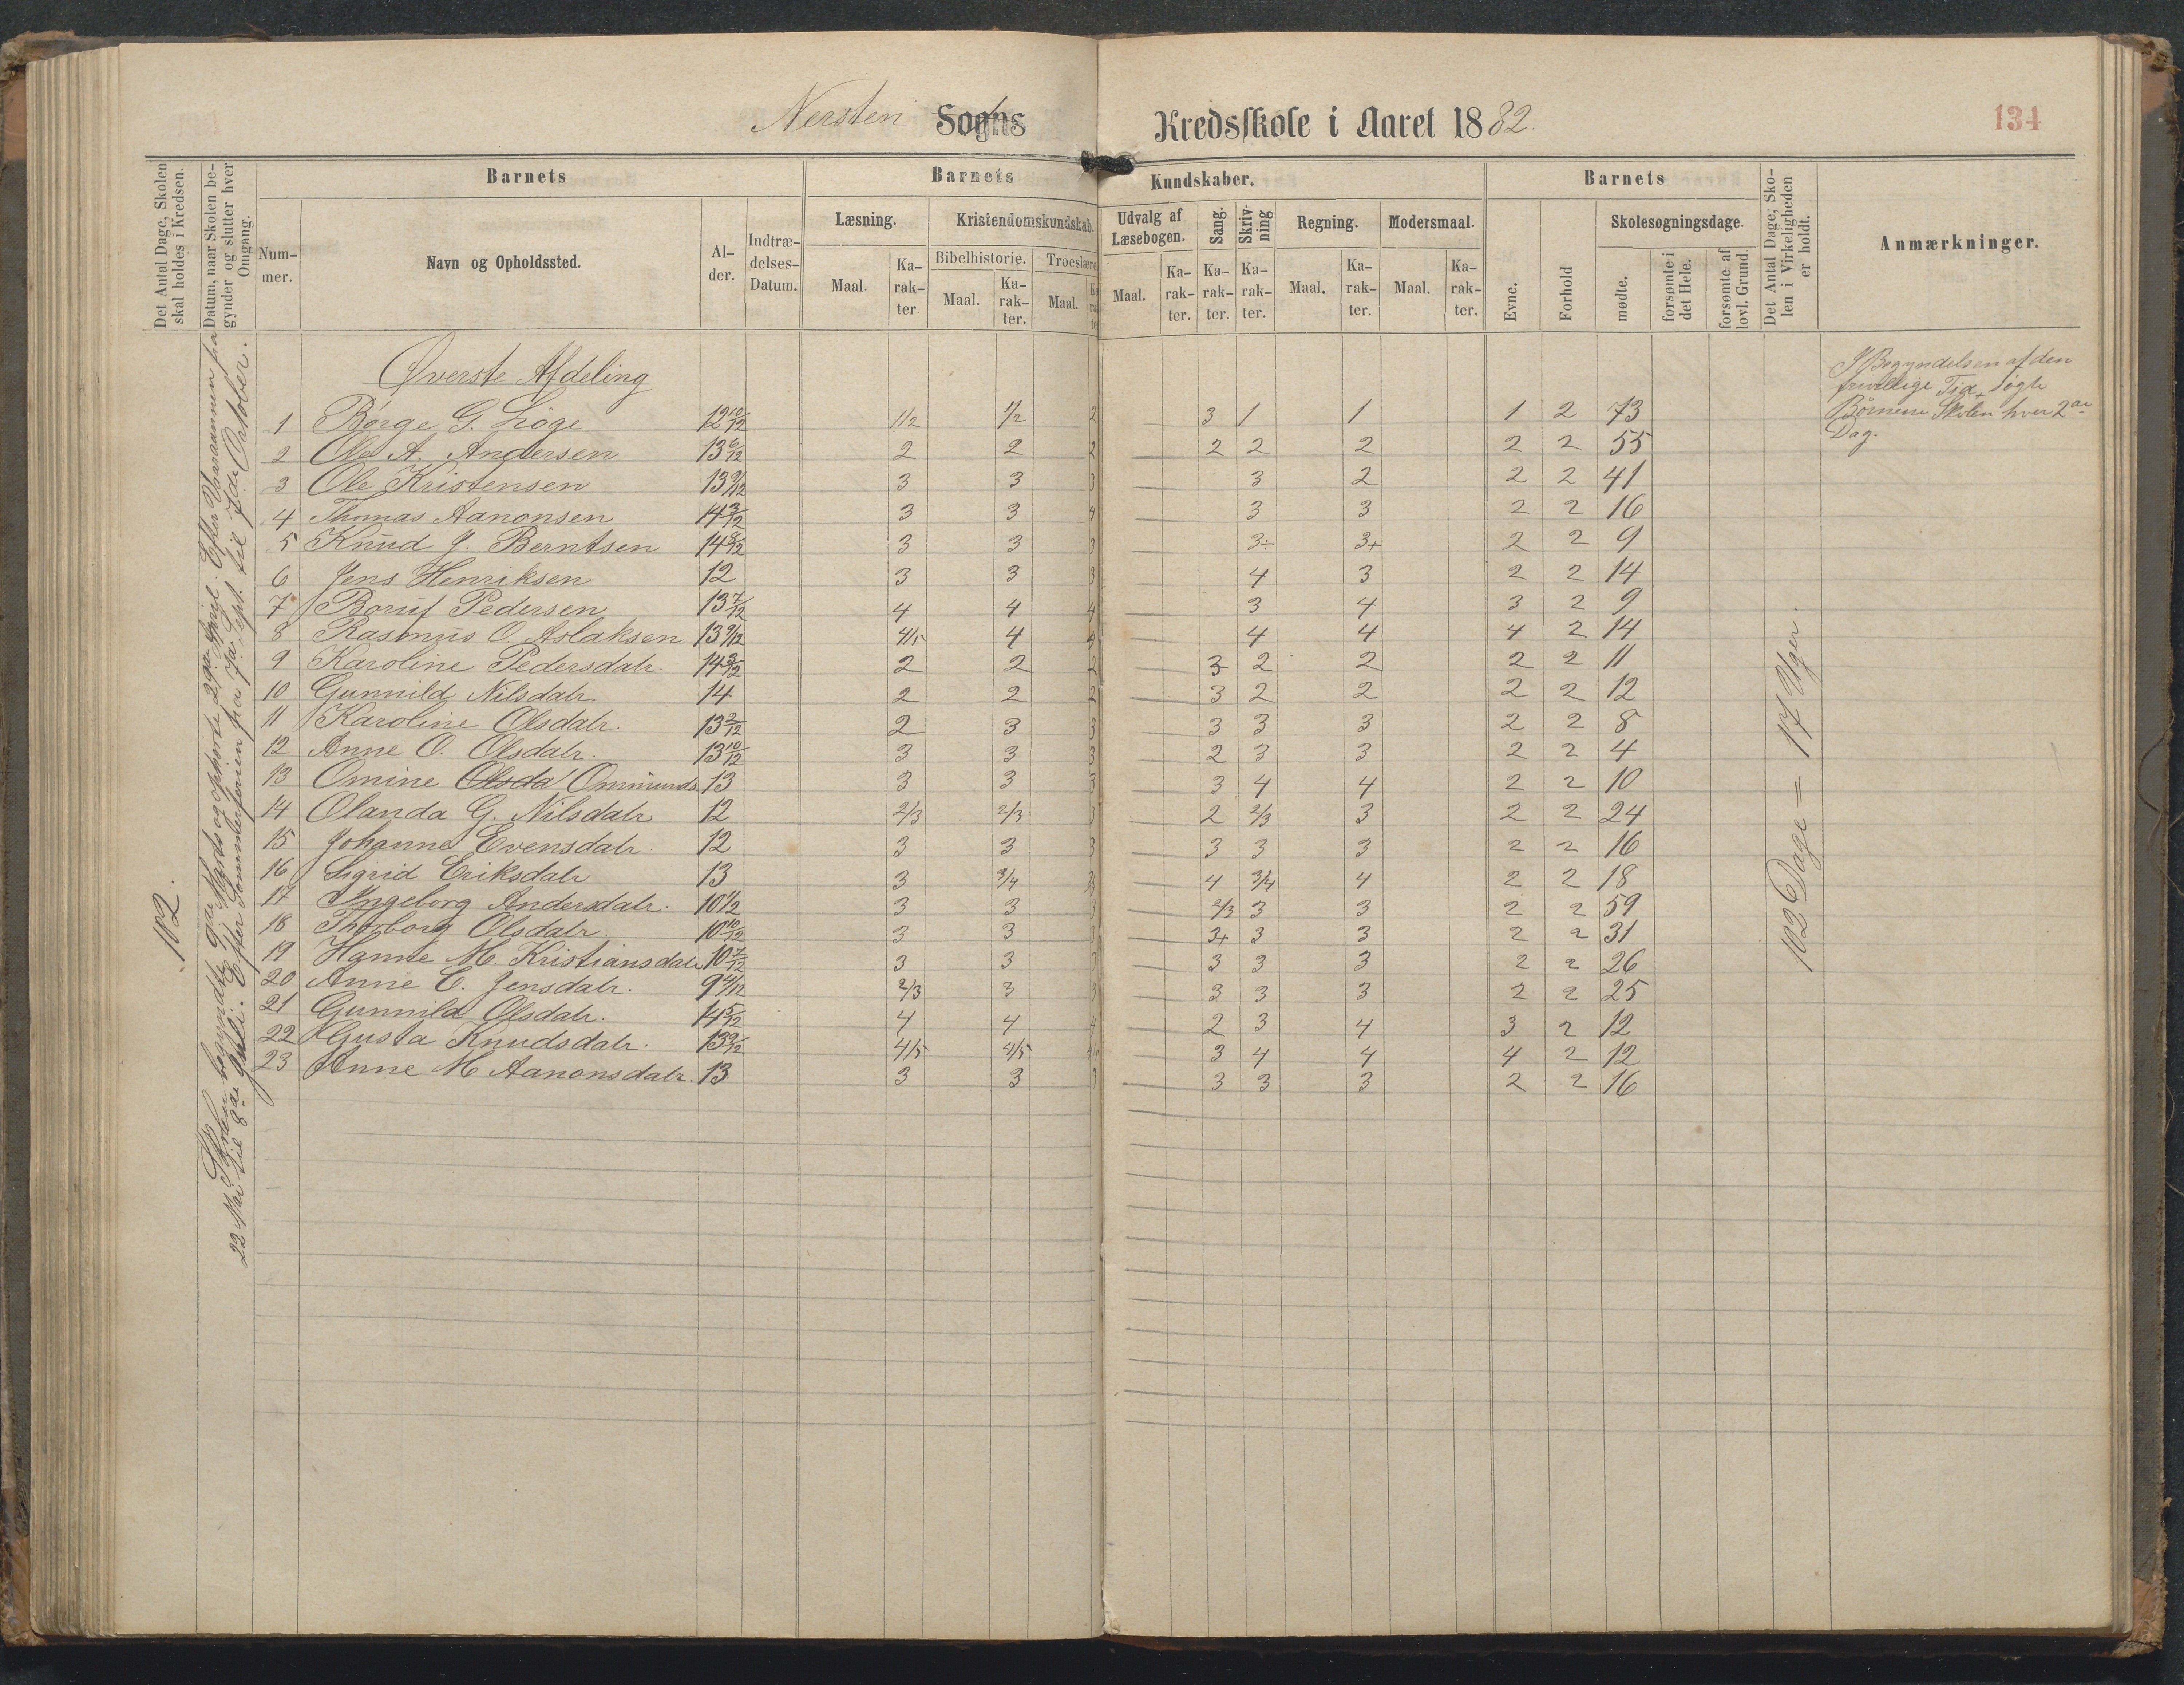 Nersten Sogns Kredsskole i Aaret 1882.
134
Det Antal Dage, Skolen skal holdes i Kredsen.
Datum, naar Skolen begynder og slutter hver Omgang.
Barnets
Nummer.
Navn og Opholdssted.
Alder.
Indtrædelses-Datum.
Barnets Kundskaber.
Læsning.
Maal.
Karakter
Kristendomskundskab.
Bibelhistorie.
Maal.
Karakter.
Troeslære
Maal.
Udvalg af Læsebogen.
Maal.
Karakter.
Sang.
Karakter.
Skrivning
Karakter.
Regning.
Maal.
Karakter.
Modersmaal.
Maal.
Karakter.
Barnets
Evne.
Forhold
Skolesøgningsdage.
mødte.
forsømte i det Hele.
forsømte af lovl. Grund.
Det Antal Dage, Skolen i Virkeligheden er holdt.
Anmærkninger.
102.
Skolen begyndte 9de Marts og ophørte 29de April. Efter Vaaraannen fra
22 Mai til 8de Juli. Efter Sommerferien fra 7de Sept. til 7de October.
Øverste Afdeling
1 Børge G. Løge 12 10/12 1/2 1/2 2 3 1 1 1 2 73
2 Ole A. Andersen 13 6/12 2 2 2 2 2 2 2 2 55
3 Ole Kristensen 13 9/12 3 3 3 3 2 2 2 41
4 Thomas Aanonsen 14 3/12 3 3 4 3 3 2 2 16
5 Knud J. Berntsen 14 8/12 3 3 3 3÷ 3+ 2 2 9
6 Jens Henriksen 12 3 3 3 4 3 2 2 14
7 Boruf Pedersen 13 7/12 4 4 4 3 4 3 2 9
8 Rasmus O. Aslaksen 13 9/12 4/5 4 4 4 4 4 2 14
9 Karoline Pedersdatr. 14 3/12 2 2 2 3 2 2 2 2 11
10 Gunnild Nilsdatr 14 2 2 2 3 2 2 2 2 12
11 Karoline Olsdatr. 13 2/12 2 3 3 3 3 3 2 2 8
12 Anne O. Olsdatr. 13 10/12 3 3 3 2 3 3 2 2 4
13 Omine Olsda Ommunds 13 3 3 3 3 4 4 2 2 10
14 Olanda G. Nilsdatr 12 2/3 2/3 3 2 2/3 3 2 2 24
15 Johanne Evensdatr 12 3 3 3 3 3 3 2 2 16
16 Sigrid Eriksdatr 13 3 3/4 3 4 3/4 4 2 2 18
17 Ingeborg Andersdatr. 10 1/2 3 3 3 2/3 3 3 2 2 59
18 Thorborg Olsdatr. 10 10/12 3 3 3 3+ 3 3 2 2 31
19 Hanne M. Kristiansdatr 10 7/12 3 3 3 3 3 3 2 2 26
20 Anne E. Jensdatr. 9 4/12 2/3 3 3 3 3 3 2 2 25
21 Gunnild Olsdatr. 14 5/12 4 4 4 2 3 4 3 2 12
22 Gusta Knudsdatr. 13 9/12 4/5 4/5 4/5 3 4 4 4 2 12
23 Anne M Aanonsdatr. 13 3 3 3 3 3 3 2 2 16
102 Dage = 17 Uger.
I Begyndelsen af den
frivillige Tid søgte
Børnene Skolen hver 2den
Dag.